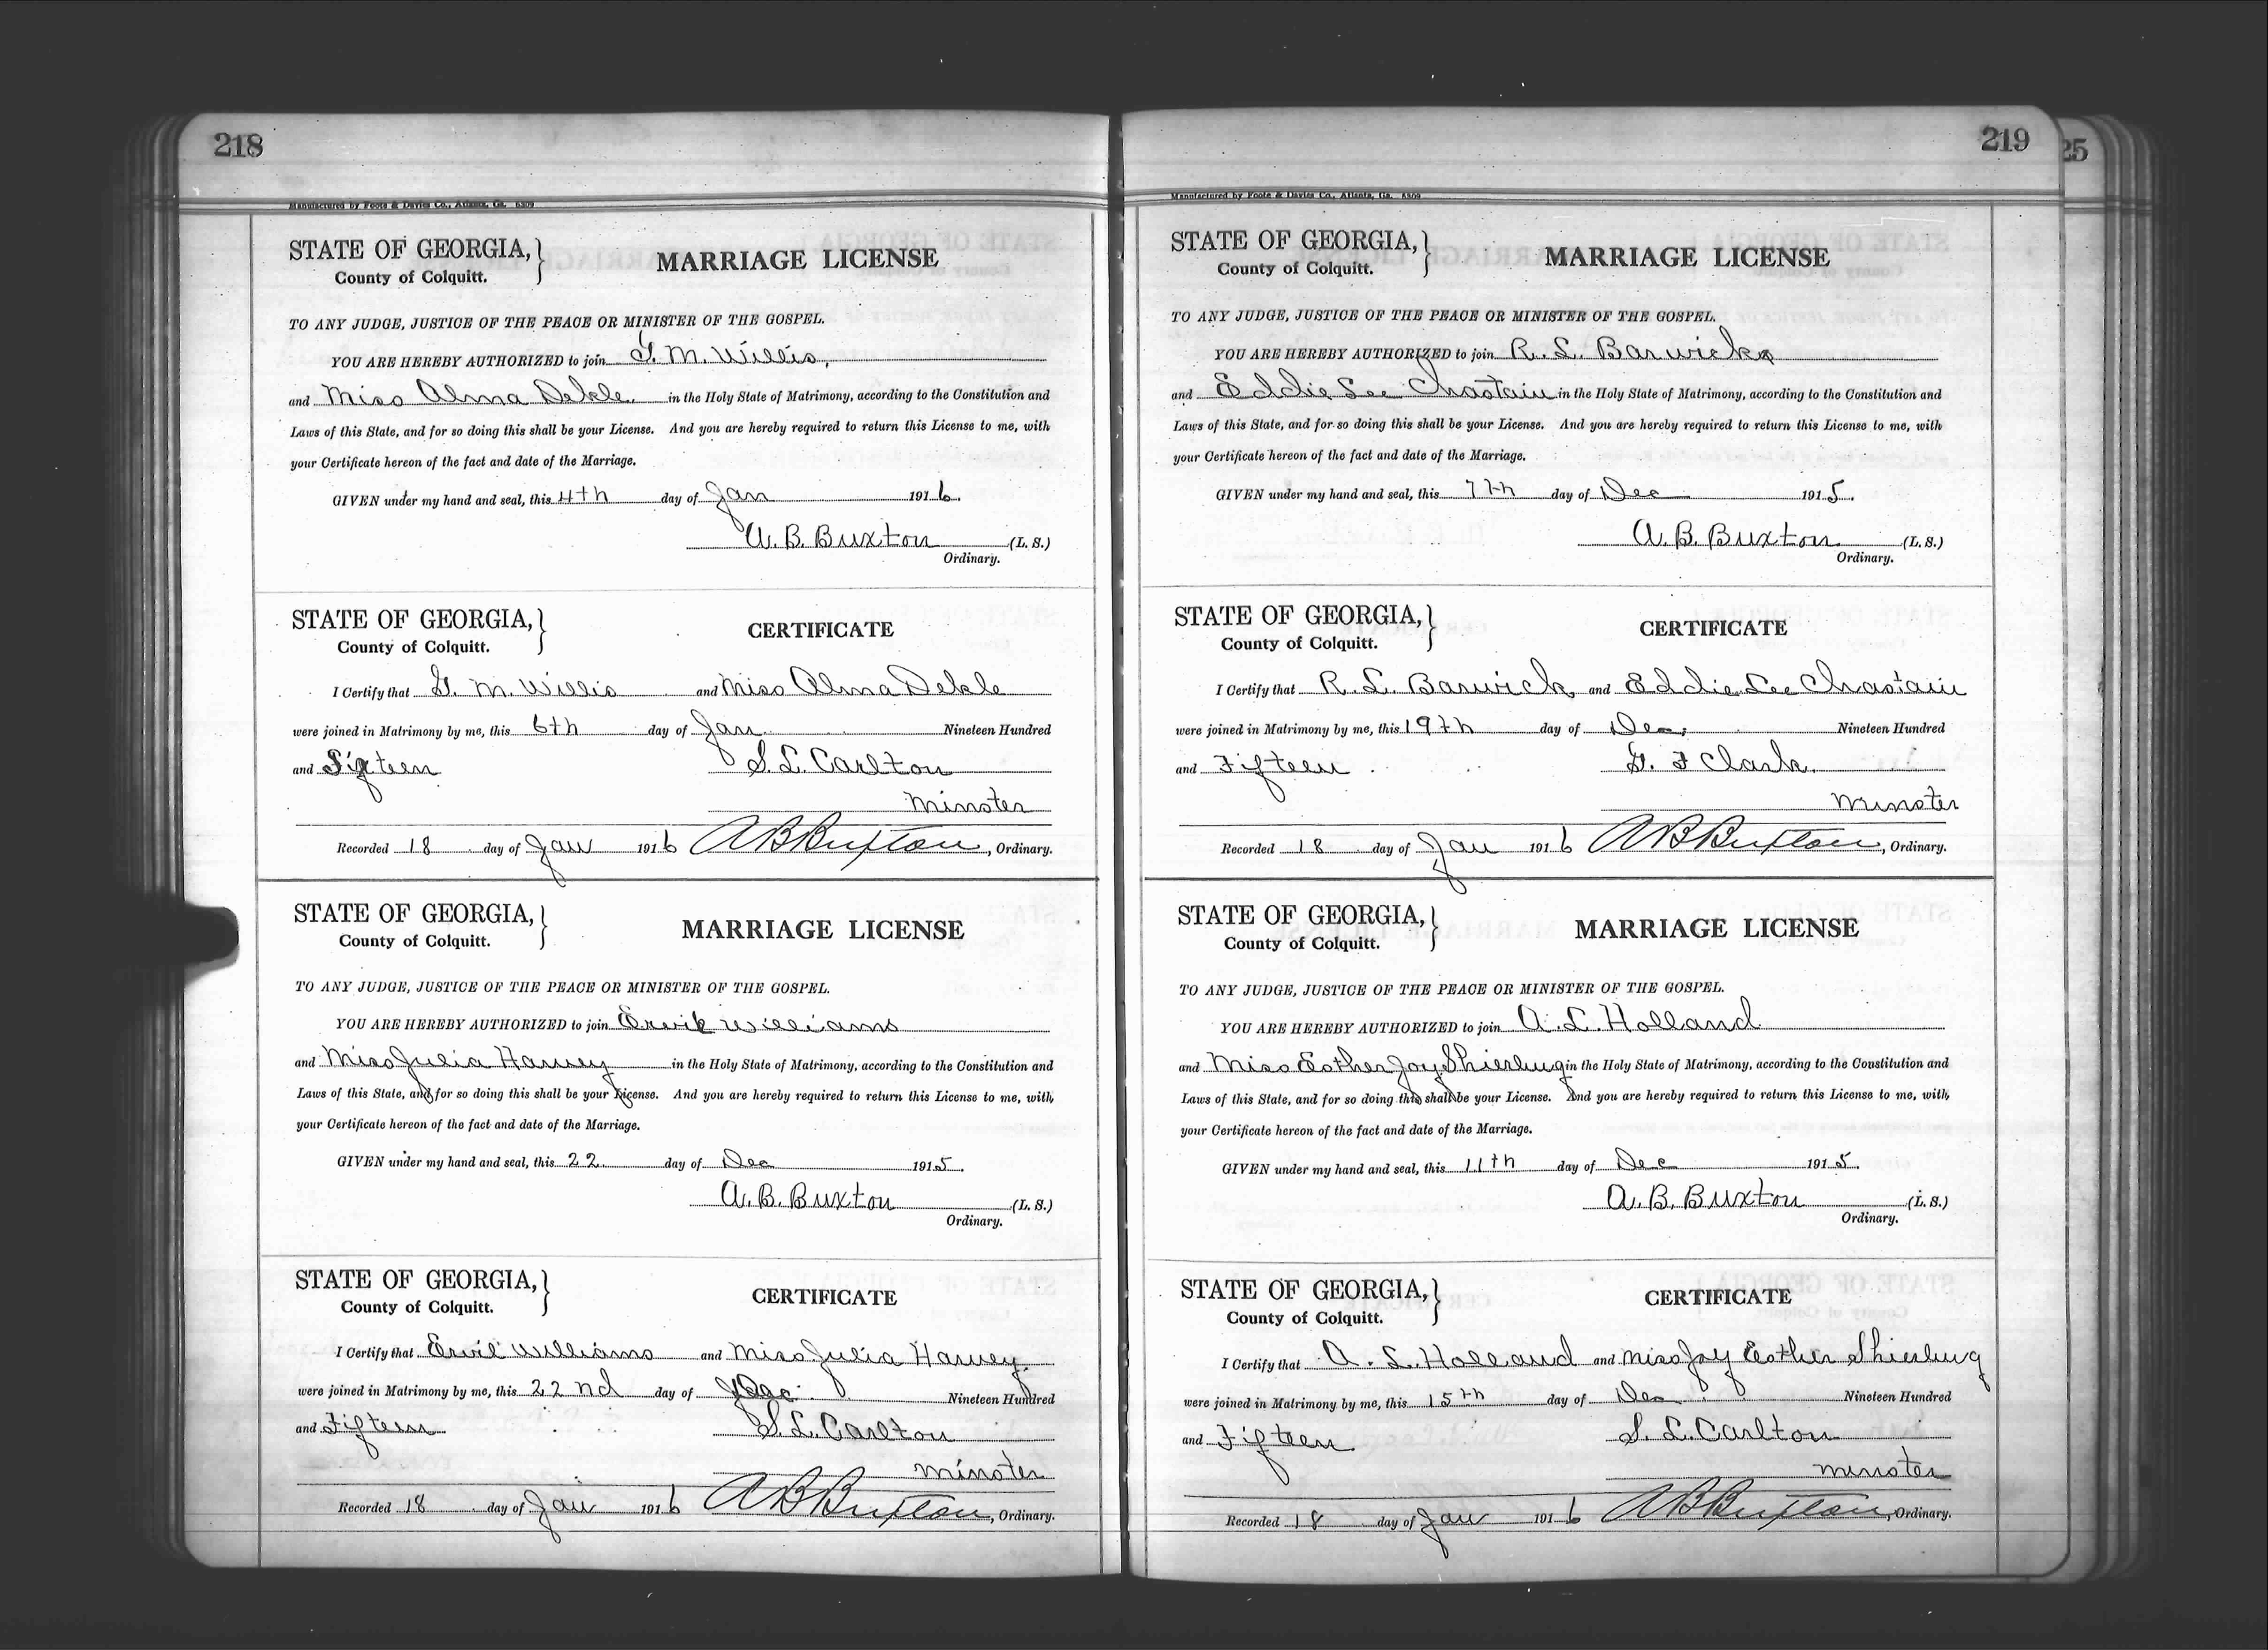 218
Manufactured by Foote & Davies Co., Atlanta, Ga. 8309
STATE OF GEORGIA,
County of Colquitt.
MARRIAGE LICENSE
TO ANY JUDGE, JUSTICE OF THE PEACE OR MINISTER OF THE GOSPEL.
YOU ARE HEREBY AUTHORIZED to join G. M. Willis,
and Miss Alma Dekle. in the Holy State of Matrimony, according to the Constitution and
Laws of this State, and for so doing this shall be your License. And you are hereby required to return this License to me, with
your Certificate hereon of the fact and date of the Marriage.
GIVEN under my hand and seal, this 4th day of Jan 1916.
A. B. Buxton (L. S.)
Ordinary.
STATE OF GEORGIA,
County of Colquitt.
CERTIFICATE
I Certify that G. M. Willis and Miss Alma Dekle
were joined in Matrimony by me, this 6th day of Jan Nineteen Hundred
and Sixteen S. L. Carlton
Minster
Recorded 18 day of Jan 1916 A B Buxton, Ordinary.
STATE OF GEORGIA,
County of Colquitt.
MARRIAGE LICENSE
TO ANY JUDGE, JUSTICE OF THE PEACE OR MINISTER OF THE GOSPEL.
YOU ARE HEREBY AUTHORIZED to join Williams
and Miss Julia Harvey in the Holy State of Matrimony, according to the Constitution and
Laws of this State, and for so doing this shall be your License. And you are hereby required to return this License to me, with
your Certificate hereon of the fact and date of the Marriage.
GIVEN under my hand and seal, this 22 day of Dec 1915.
A. B. Buxton (L. S.)
Ordinary.
STATE OF GEORGIA,
County of Colquitt.
CERTIFICATE
I Certify that Ervil Williams and Miss Julia Harvey.
were joined in Matrimony by me, this 22nd day of Dec. Nineteen Hundred
and Fifteen S. L. Carlton
minster
Recorded 18 day of Jan 1916 A B Buxton, Ordinary.
219
25
Manufactured by Foote & Davies Co., Atlanta, Ga. 8309
STATE OF GEORGIA,
County of Colquitt.
MARRIAGE LICENSE
TO ANY JUDGE, JUSTICE OF THE PEACE OR MINISTER OF THE GOSPEL.
YOU ARE HEREBY AUTHORIZED to join R. L. Barwick
and Eddie Lee Chastain in the Holy State of Matrimony, according to the Constitution and
Laws of this State, and for so doing this shall be your License. And you are hereby required to return this License to me, with
your Certificate hereon of the fact and date of the Marriage.
GIVEN under my hand and seal, this 7th day of Dec 1915.
A. B. Buxton (L. S.)
Ordinary.
STATE OF GEORGIA,
County of Colquitt.
CERTIFICATE
I Certify that R. L. Barwick and Eddie Lee Chastain
were joined in Matrimony by me, this 19th day of Dec, Nineteen Hundred
and Fifteen G. F Clark.
minster
Recorded 18 day of Jan 1916 A B Buxton, Ordinary.
STATE OF GEORGIA,
County of Colquitt.
MARRIAGE LICENSE
TO ANY JUDGE, JUSTICE OF THE PEACE OR MINISTER OF THE GOSPEL.
YOU ARE HEREBY AUTHORIZED to join A. L. Holland
and Miss Esther Joy Shierling in the Holy State of Matrimony, according to the Constitution and
Laws of this State, and for so doing this shall be your License. And you are hereby required to return this License to me, with
your Certificate hereon of the fact and date of the Marriage.
GIVEN under my hand and seal, this 11th day of Dec 1915.
A. B. Buxton (L. S.)
Ordinary.
STATE OF GEORGIA,
County of Colquitt.
CERTIFICATE
I Certify that A. L. Holland and miss Joy Esther Shierling
were joined in Matrimony by me, this 15th day of Dec Nineteen Hundred
and Fifteen S. L. Carlton
minster
Recorded 18 day of Jan 1916 A B Buxton, Ordinary.